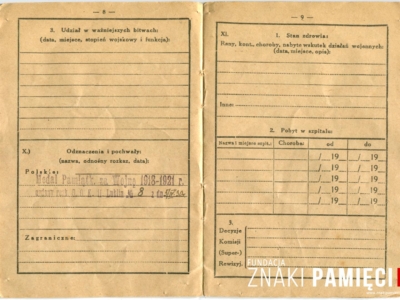 — 8 —
3. Udział w ważniejszych bitwach:
(data, miejsce, stopień wojskowy i funkcja):
X.) Odznaczenia i pochwały:
(nazwa, odnośny rozkaz, data):
Polskie:
Medal Pamiątk. za Wojnę 1918-1921 r.
Lublin № 8 z dn.
Zagraniczne:
— 9 —
XI. 1. Stan zdrowia:
Rany, kont., choroby, nabyte wskutek działań wojennych:
(data, miejsce, opis):
Inne:
2. Pobyt w szpitalu:
Nazwa i miejsce szpit. Choroba: od do
/ 19 / 19
/ 19 / 19
/ 19 / 19
/ 19 / 19
/ 19 / 19
3.
Decyzje
Komisji
(Super-)
Rewizyj.
FUNDACJA
ZNAKI PAMIĘCI